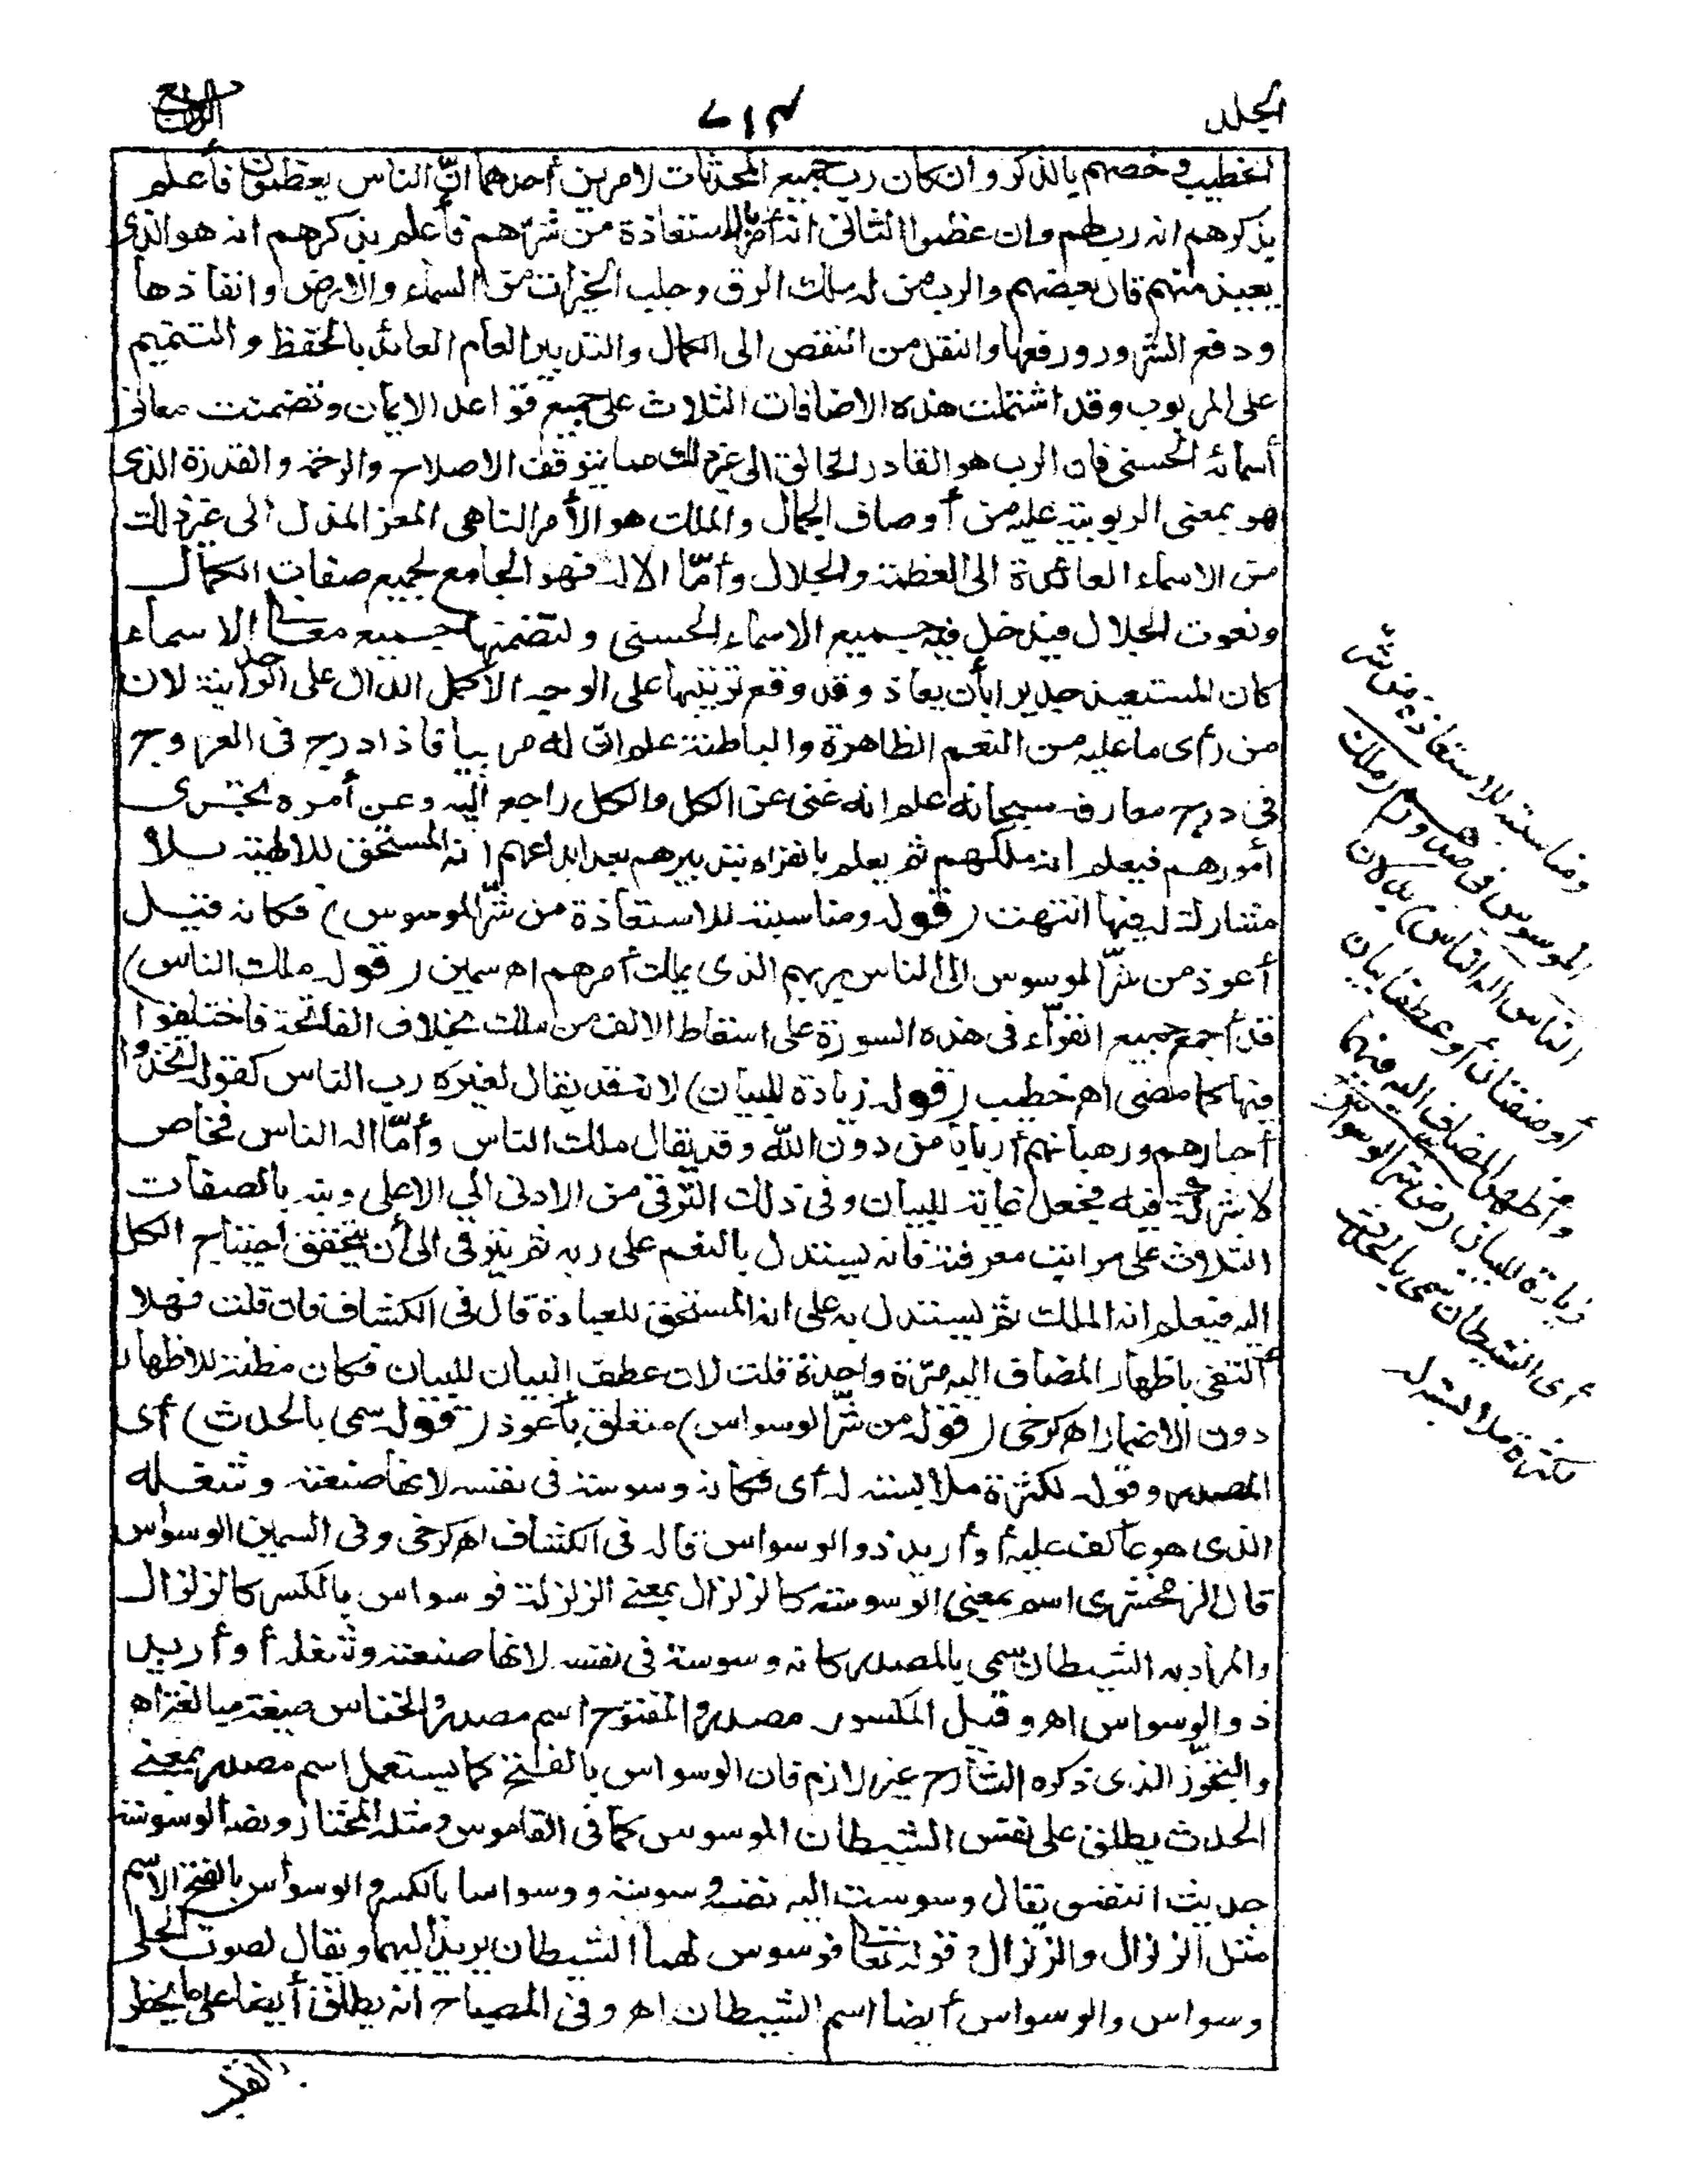 الجلد
٦١٣
الرابع
الخطيب خصهم بالذكر وان كان رب جميع المحدثات لامرين أحدهما انّ الناس يعظمون فأعلم
بذكرهم انه ربهم وان عظموا الثاني انه أمر بالاستعاذة من شرّهم فأعلم بذكرهم انه هو الذى
يعيذ منهم قال بعضهم والرب من له ملك الرق وجلب الخيرات من السماء والارض وانقاذها
ودفع الشرور ورفعها والنقل من النقص الى الكمال والتدبير العام العائد بالحفظ والتتميم
على المربوب وقد اشتملت هذه الاضافات الثلاث على جميع قواعد الايمان وتضمنت معانى
أسمائه الحسنى فان الرب هو القادر الخالق الى غير ذلك مما يتوقف الاصلاح والرحمة والقدرة الذى
هو بمعنى الربوبية عليه من أوصاف الجمال والملك هو الأمر الناهى المعز المذل الى غير ذلك
من الاسماء العائدة الى العظمة والجلال وأمّا الاله فهو الجامع لجميع صفات الكمال
ونعوت الجلال فيدخل فيه جميع الاسماء الحسنى ولتضمنها جميع معانى الاسماء
كان المستعيذ جديرا بأن يعاذ وقد وقع ترتيبها على الوجه الاكمل الدال على الوحدانية لان
من رأى ما عليه من النعم الظاهرة والباطنة علم ان له مربيا فاذا درج فى العروج
فى درج معارفه سبحانه علم انه غنى عن الكل والكل راجع اليه وعن أمره تجرى
أمورهم فيعلم انه ملكهم ثم يعلم بانفراده بتدبيرهم بعد ابداعهم انه المستحق للالهية بلا
مشارك له فيها انتهت (قوله ومناسبته للاستعاذة من شرّ الموسوس) فكانه قيل
أعوذ من شرّ الموسوس الى الناس بربهم الذى يملك أمرهم اه سمين (قوله ملك الناس)
قد أجمع جميع القرّاء فى هذه السورة على اسقاط الالف من ملك بخلاف الفاتحة فاختلفوا
فيها كما مضى اه خطيب (قوله زيادة للبيان) لانه قد يقال لغيره رب الناس كقوله اتخذوا
أحبارهم ورهبانهم أربابا من دون الله وقد يقال ملك الناس وأمّا اله الناس فخاص
لا شركة فيه فجعل غاية للبيان وفى ذلك الترقى من الادنى الى الاعلى ونبه بالصفات
الثلاث على مراتب معرفته فانه يستدل بالنعم على ربه ثم يترقى الى أن يتحقق احتياج الكل
اليه فيعلم انه الملك ثم يستدل به على انه المستحق للعبادة قال فى الكشاف فان قلت فهلا
اكتفى باظهار المضاف اليه مرّة واحدة قلت لان عطف البيان للبيان فكان مظنة للاظهار
دون الاضمار اه كرخى (قوله من شرّ الوسواس) متعلق بأعوذ (قوله سمى بالحدث) أى
المصدر وقوله لكثرة ملابسته له أى فكانه وسوسة فى نفسه لانها صنعته وشغله
الذى هو عاكف عليه أو أريد ذو الوسواس قاله فى الكشاف اه كرخى وفى السمين الوسواس
قال الزمخشرى اسم بمعنى الوسوسة كالزلزال بمعنى الزلزلة فوسواس بالكسر كالزلزال
والمراد به الشيطان سمى بالمصدر كانه وسوسة فى نفسه لانها صنعته وشغله أو أريد
ذو الوسواس اه وقيل المكسور مصدر والمفتوح اسم مصدر والخناس صيغة مبالغة اه
والتجوّز الذى ذكره الشارح غير لازم فان الوسواس بالفتح كما يستعمل اسم مصدر بمعنى
الحدث يطلق على نفس الشيطان الموسوس كما فى القاموس ومثله المختار ونصه الوسوسة
حديث النفس يقال وسوست اليه نفسه وسوسة ووسواسا بالكسر والوسواس بالفتح الاسم
مثل الزلزال والزلزال وقوله تعالى فوسوس لهما الشيطان يريد اليهما ويقال لصوت الحلى
وسواس والوسواس أيضا اسم الشيطان اه وفى المصباح انه يطلق أيضا على ما يخطر
ومناسبته للاستعاذة من شر
الموسوس فى صدورهم (ملك
الناس اله الناس) بدلان
أو صفتان أو عطفا بيان
وأظهر المضاف اليه فيهما
زيادة للبيان (من شر الوسواس)
أى الشيطان سمى بالحدث
لكثرة ملابسته له